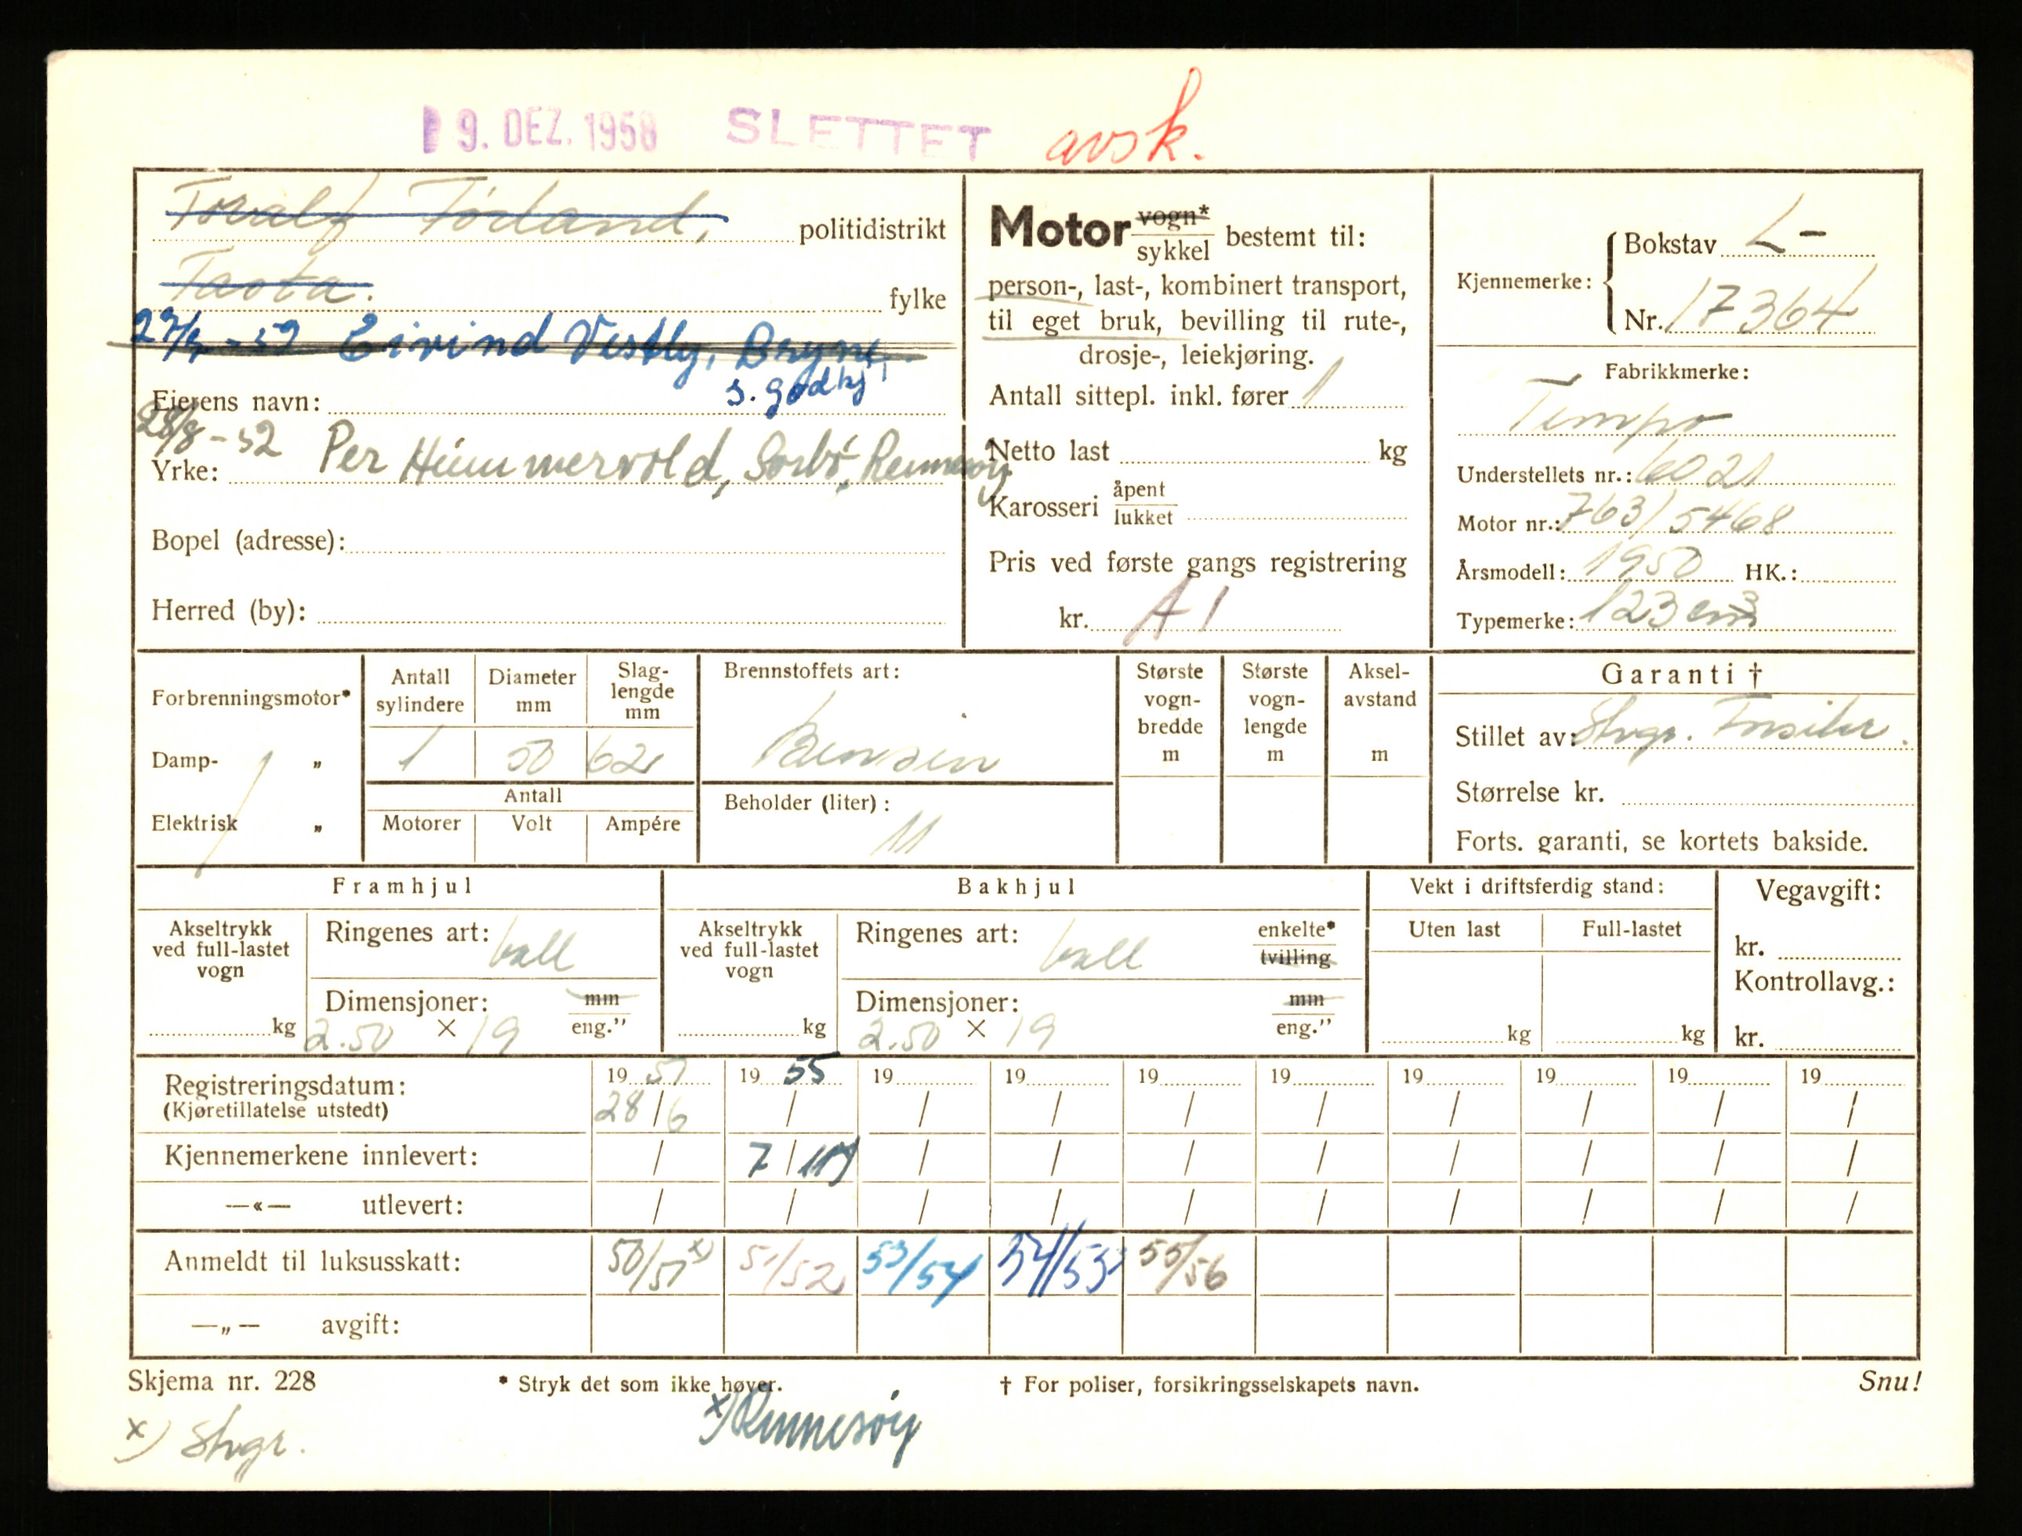 9. DEZ. 1958 SLETTET avsk.
Toralf Førland, politidistrikt
Tasta. fylke
Eivind Vestly, Bryne
s. godkj
Eierens navn:
28/8-52 Per Hummervold, Sørbø, Rennesøy
Yrke:
Bopel (adresse):
Herred (by):
Motor vogn* sykkel bestemt til:
person-, last-, kombinert transport,
til eget bruk, bevilling til rute-,
drosje-, leiekjøring.
Antall sittepl. inkl. fører 1
Netto last kg
Karosseri åpent lukket
Pris ved første gangs registrering
kr. A 1
Kjennemerke: Bokstav L-
Nr. 17364
Fabrikkmerke:
Tempo
Understellets nr.: 6021
Motor nr.: 763/5468
Årsmodell: 1950 HK.:
Typemerke: 123 cm3
Forbrenningsmotor*
Damp- „
Elektrisk „
Antall sylindere Diameter mm Slag-lengde mm
1 50 62
Antall
Motorer Volt Ampére
Brennstoffets art:
Bensin
Beholder (liter):
11
Største vogn-bredde m
Største vogn-lengde m
Aksel-avstand m
Garanti †
Stillet av: Stvgr. Forsikr.
Størrelse kr.
Forts. garanti, se kortets bakside.
Framhjul
Akseltrykk ved full-lastet vogn
kg
Ringenes art: ball
Dimensjoner: mm
2.50 × 19 eng.”
Bakhjul
Akseltrykk ved full-lastet vogn
kg
Ringenes art: ball enkelte* tvilling
Dimensjoner: mm
2.50 × 19 eng.”
Vekt i driftsferdig stand:
Uten last Full-lastet
kg kg
Vegavgift:
kr.
Kontrollavg.:
kr.
19 51 19 55 19 19 19 19 19 19 19 19
Registreringsdatum:
(Kjøretillatelse utstedt) 28/6 / / / / / / / / /
Kjennemerkene innlevert: / 7/ / / / / / / / /
—«— utlevert: / / / / / / / / / /
Anmeldt til luksusskatt: 50/51 x) 51/52 53/54 54/53 55/56
—„— avgift:
Skjema nr. 228 * Stryk det som ikke høver. † For poliser, forsikringsselskapets navn. Snu!
x) Stvgr. x) Rennesøy